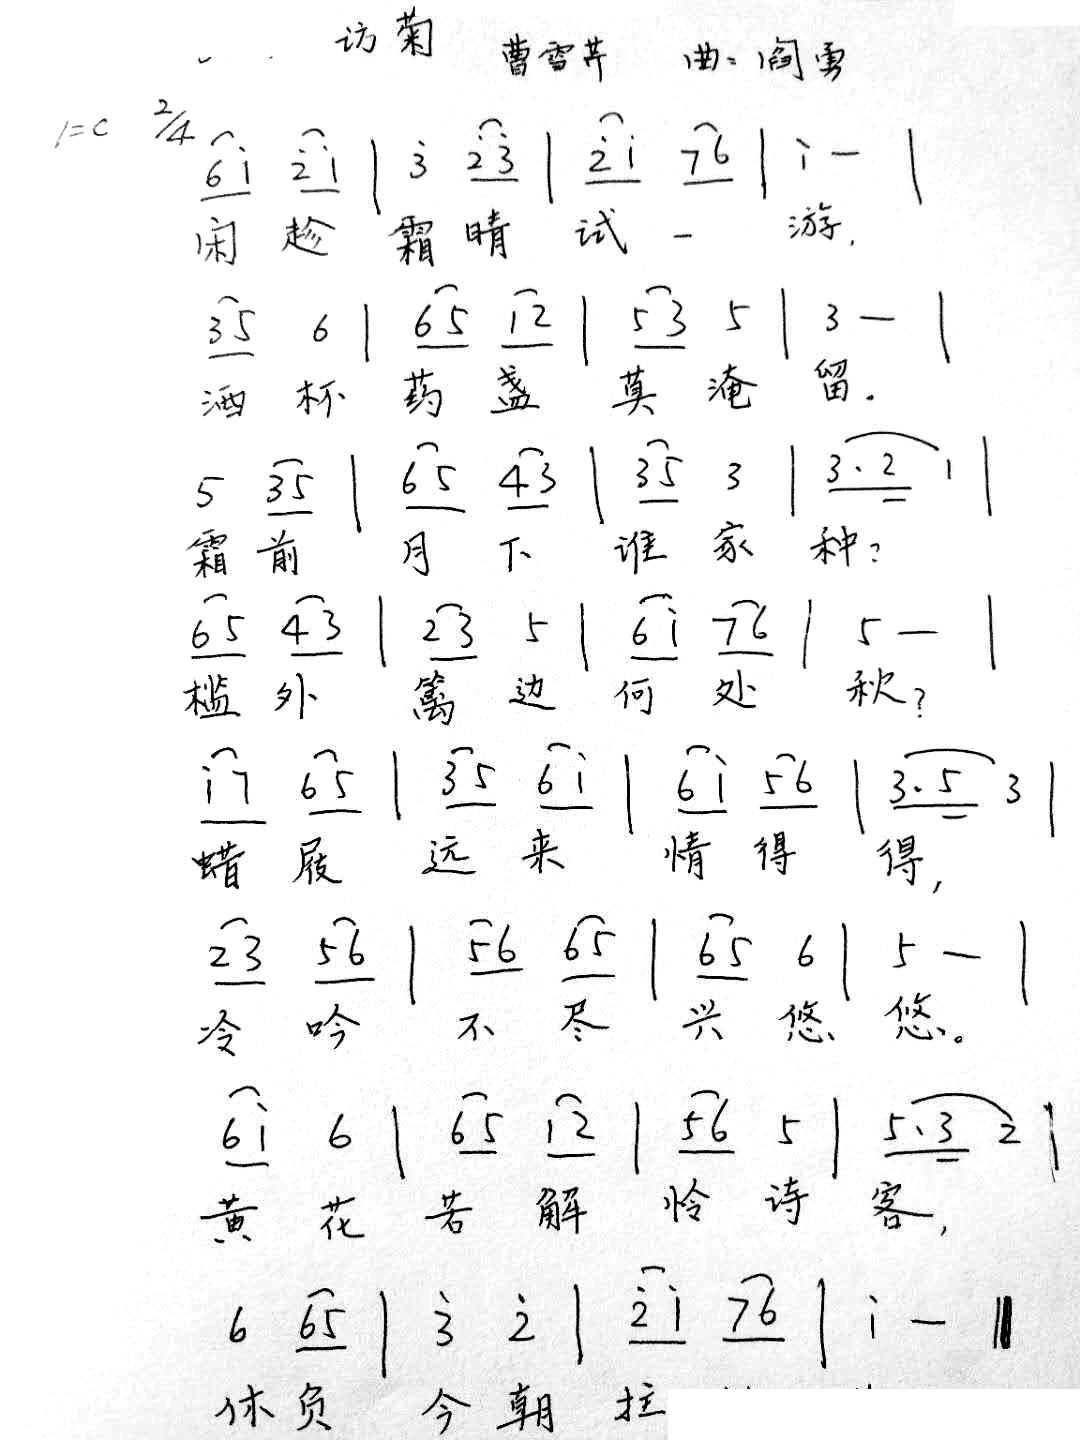 访菊
曹雪芹 曲:阎勇
1=C 2/4
6i 2̇i | 3̇ 2̇3̇ | 2̇i 76 | i — |
闲趁霜晴试一游,
35 6 | 65 12 | 53 5 | 3 — |
酒杯药盏莫淹留。
5 35 | 65 43 | 35 3 | 3.2 1 |
霜前月下谁家种?
65 43 | 23 5 | 6i 76 | 5 — |
槛外篱边何处秋?
i7 65 | 35 6i | 6i 56 | 3.5 3 |
蜡屐远来情得得,
23 56 | 56 65 | 65 6 | 5 — |
冷吟不尽兴悠悠。
6i 6 | 65 i2 | 56 5 | 5.3 2 |
黄花若解怜诗客,
6 65 | 3̇ 2̇ | 2̇i 76 | i — ‖
休负今朝拄